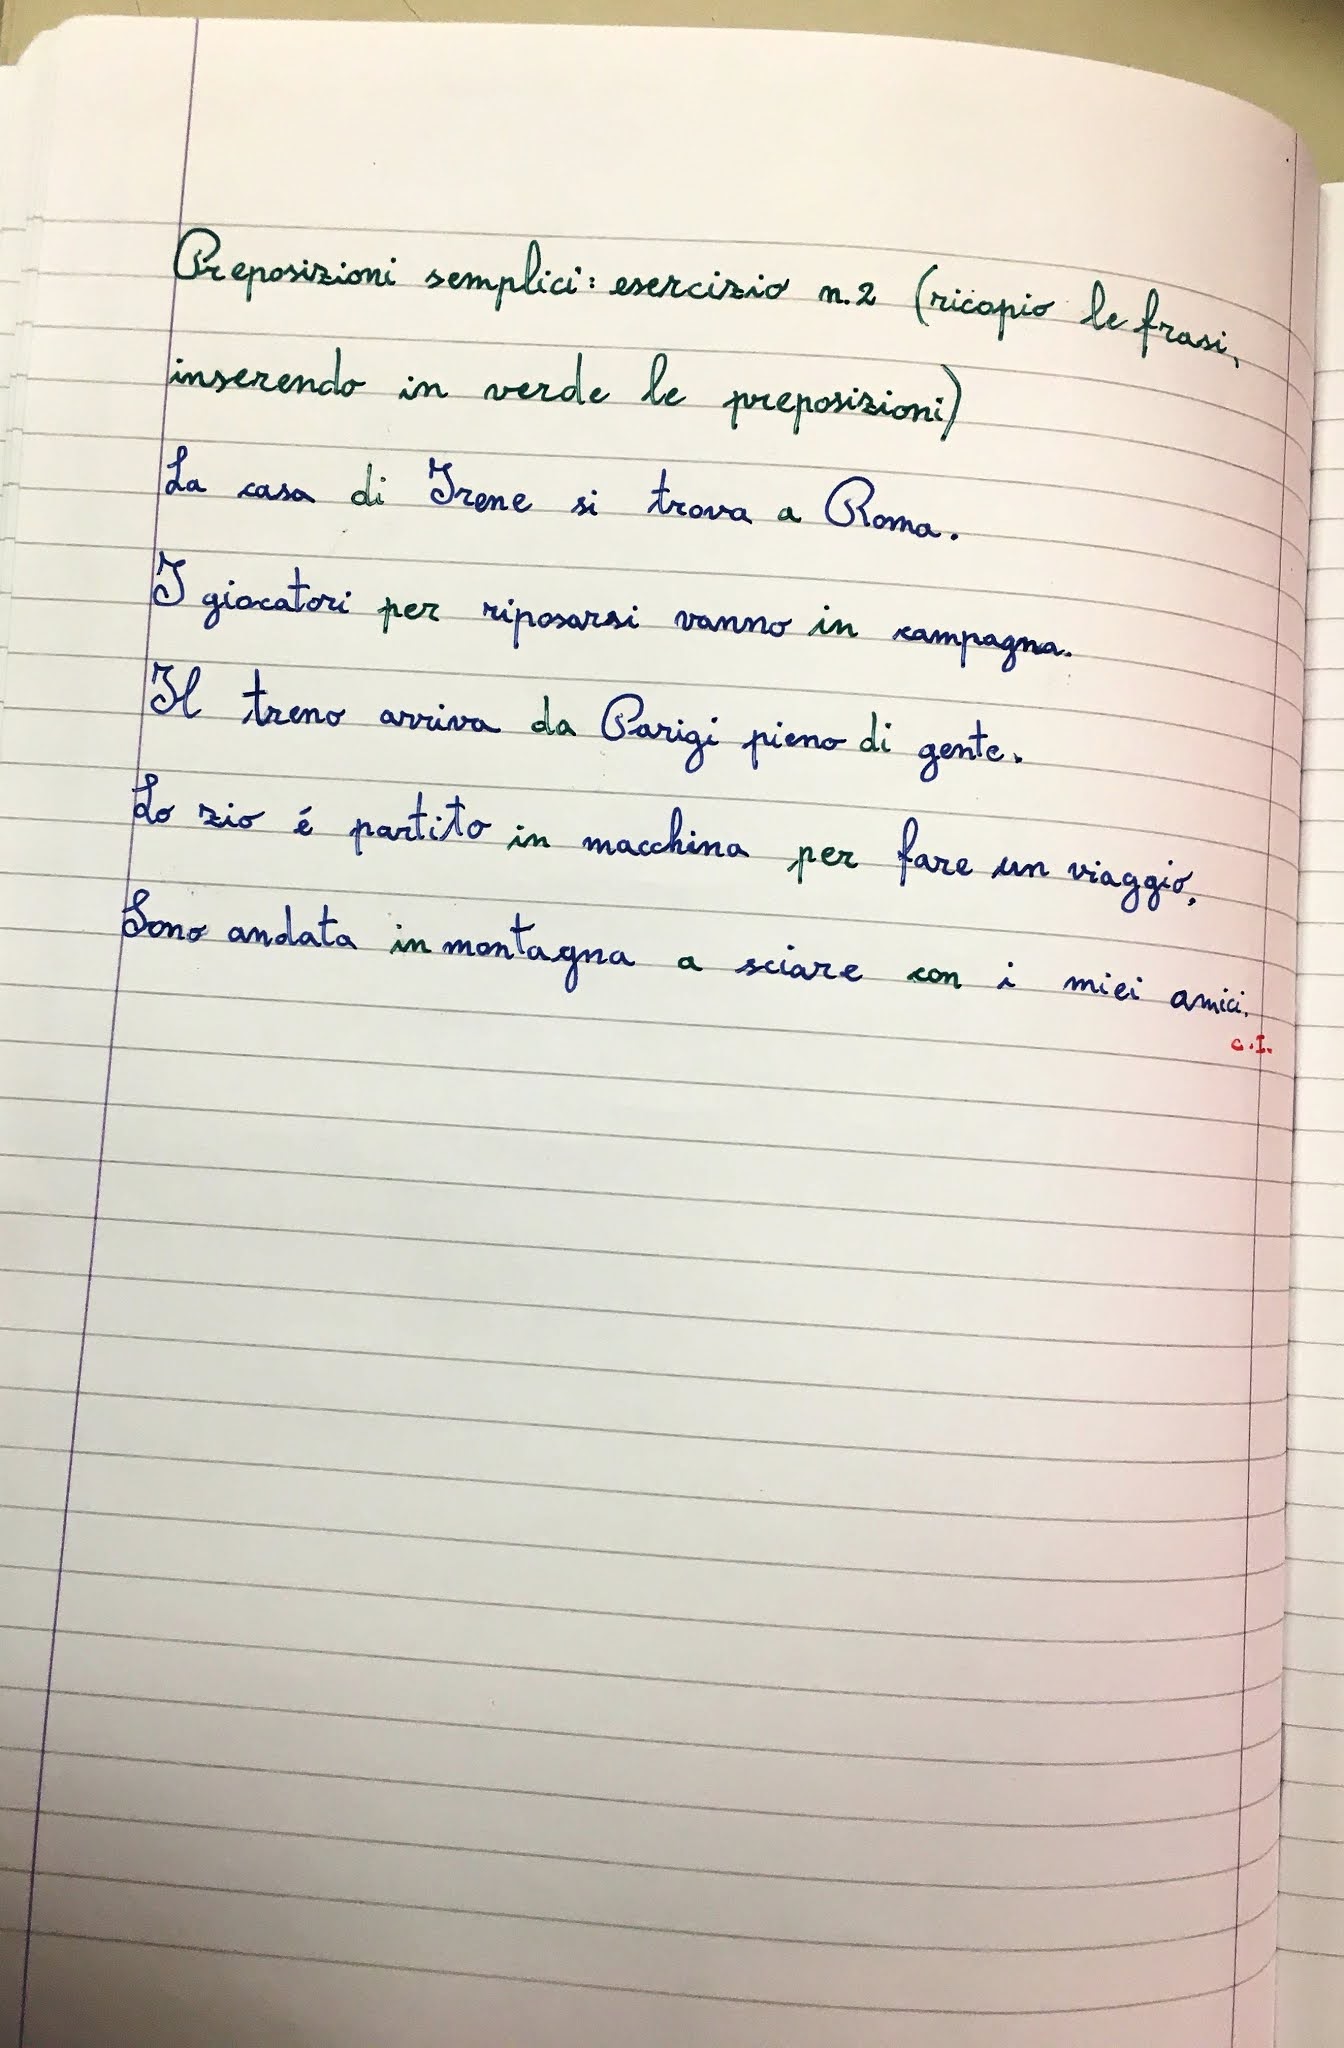 Preposizioni semplici: esercizio n.2 (ricopio le frasi,
inserendo in verde le preposizioni)
La casa di Irene si trova a Roma.
I giocatori per riposarsi vanno in campagna.
Il treno arriva da Parigi pieno di gente.
Lo zio é partito in macchina per fare un viaggio.
Sono andata in montagna a sciare con i miei amici.
c.I.